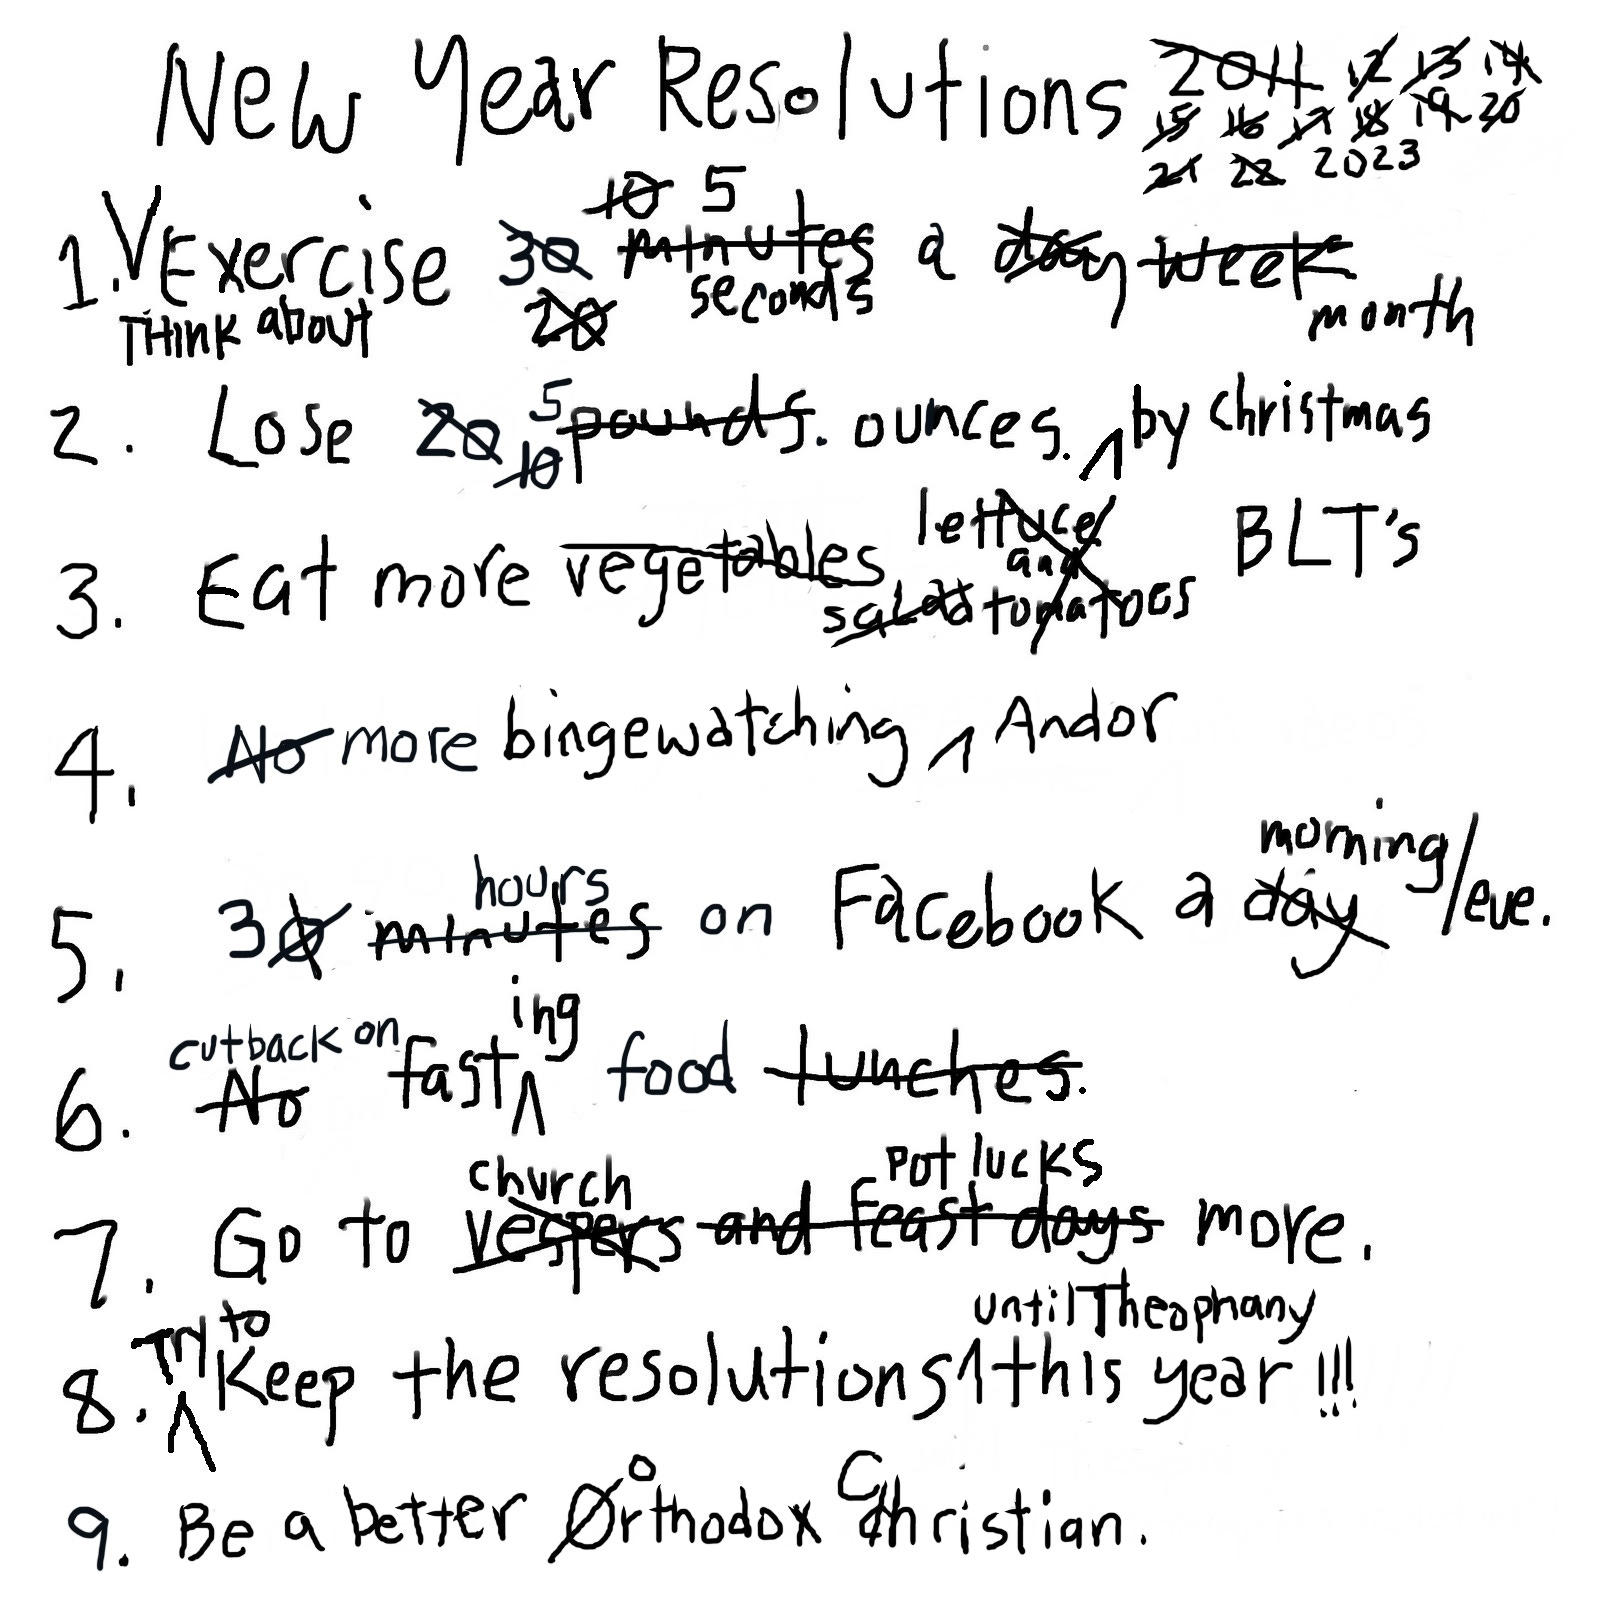 New Year Resolutions 2011 12 13 14
15 16 17 18 19 20
21 22 2023
10 5
1. V Exercise 30 minutes a day week
Think about 20 seconds month
5
2. Lose 20 pounds. ounces. ^ by christmas
10
lettuce
3. Eat more vegetables and BLT's
salad tomatoes
4. No more bingewatching ^ Andor
hours morning/eve.
5. 30 minutes on Facebook a day
cutback on ing
6. No fast^ food lunches.
church pot lucks
7. Go to vespers and feast days more.
Try to until Theophany
8. ^ Keep the resolutions ^ this year!!!
o C
9. Be a better Orthodox Christian.